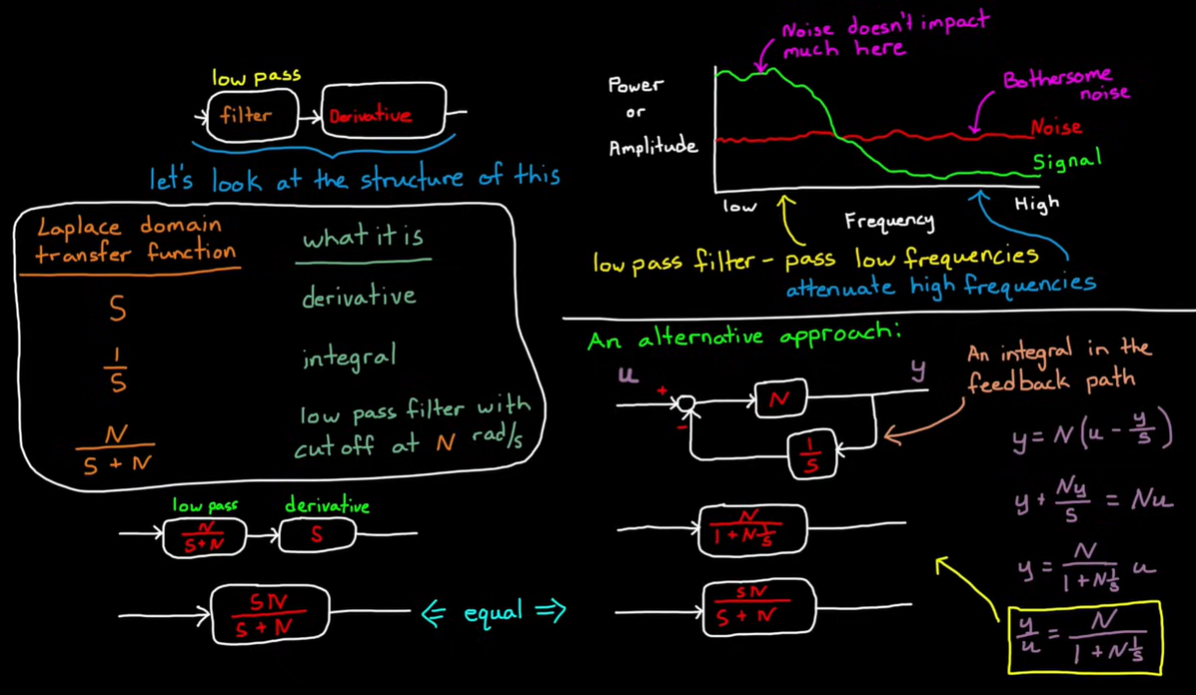 low pass
filter
Derivative
let's look at the structure of this
Laplace domain
transfer function
what it is
S
derivative
1/S
integral
N/(S + N)
low pass filter with
cut off at N rad/s
low pass
derivative
N/(S+N)
S
SN/(S + N)
⇐ equal ⇒
Noise doesn't impact
much here
Power
or
Amplitude
Bothersome
noise
Noise
Signal
low
Frequency
High
low pass filter - pass low frequencies
attenuate high frequencies
An alternative approach:
An integral in the
feedback path
u
y
+
-
N
1/S
N/(1+N 1/S)
SN/(S + N)
y = N(u - y/S)
y + Ny/S = Nu
y = N/(1+N 1/S) u
y/u = N/(1+N 1/S)